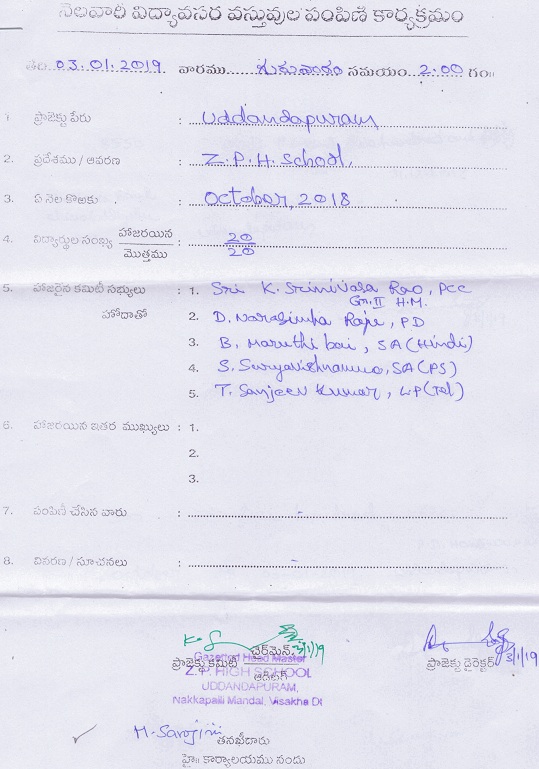 నెలవారి విద్యావసర వస్తువుల పంపిణి కార్యక్రమం
తేది 03.01.2019 వారము శుక్రవారం సమయం 2:00 గం॥
1. ప్రాజెక్టు పేరు : Uddandapuram
2. ప్రదేశము / ఆవరణ : Z.P.H. School.
3. ఏ నెల కొఱకు : October, 2018
4. విద్యార్థుల సంఖ్య హాజరయిన / మొత్తము : 20 / 20
5. హాజరైన కమిటీ సభ్యులు : 1. Sri K. Srinivasa Rao, PCC
Gr.II H.M.
హోదాతో 2. D. Narasimha Raju, PD
3. B. Maruthi bai, SA (Hindi)
4. S. Suryavishnamma, SA (PS)
5. T. Sanjeev Kumar, LP (Tel)
6. హాజరయిన ఇతర ముఖ్యులు : 1.
2.
3.
7. పంపిణీ చేసిన వారు : -
8. వివరణ / సూచనలు : -
3/1/19
3/1/19
ప్రాజెక్టు కమిటీ చైర్‌మెన్ / ఆడిటర్ ప్రాజెక్టు డైరెక్టర్
Gazetted Head Master
Z.P. HIGH SCHOOL
UDDANDAPURAM,
Nakkapalli Mandal, Visakha Dt
M. Sarojini
తనఖీదారు
హై॥ కార్యాలయము నందు